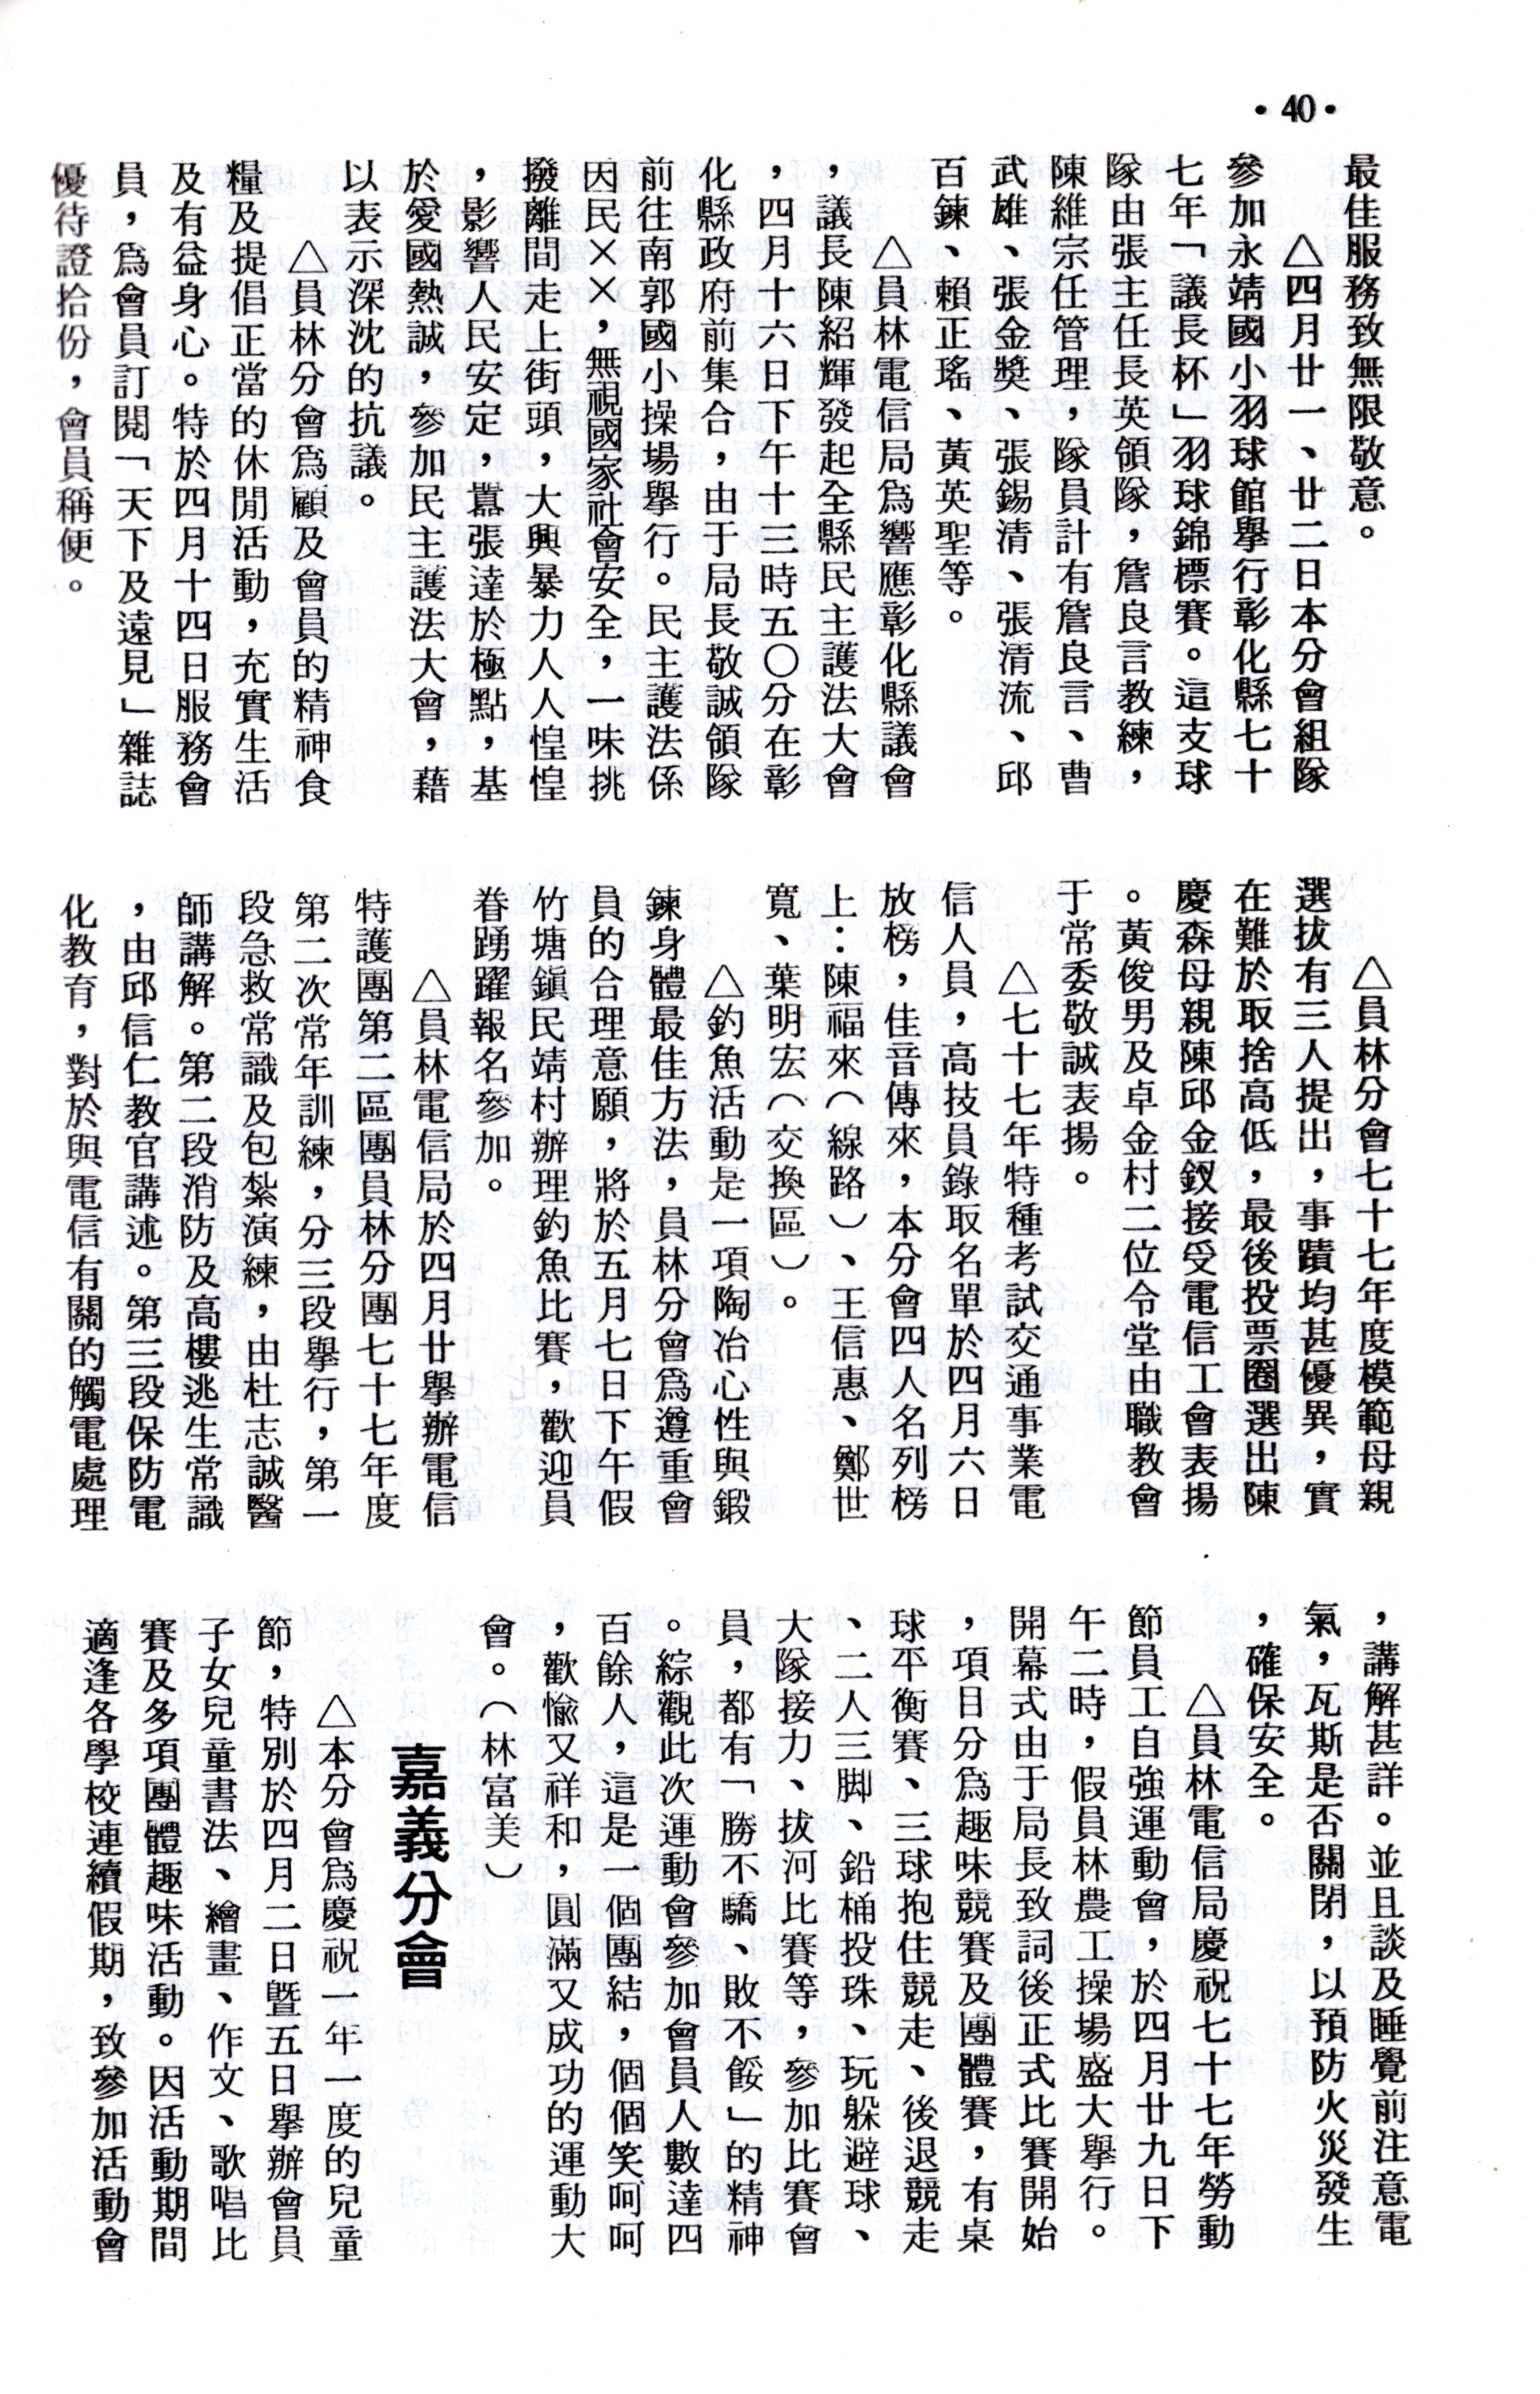 •40•
最佳服務致無限敬意。
△四月廿一、廿二日本分會組隊
參加永靖國小羽球館舉行彰化縣七十
七年「議長杯」羽球錦標賽。這支球
隊由張主任長英領隊，詹良言教練，
陳維宗任管理，隊員計有詹良言、曹
武雄、張金獎、張錫清、張清流、邱
百鍊、賴正瑤、黃英聖等。
△員林電信局爲響應彰化縣議會
，議長陳紹輝發起全縣民主護法大會
，四月十六日下午十三時五〇分在彰
化縣政府前集合，由于局長敬誠領隊
前往南郭國小操場舉行。民主護法係
因民××，無視國家社會安全，一味挑
撥離間走上街頭，大興暴力人人惶惶
，影響人民安定，囂張達於極點，基
於愛國熱誠，參加民主護法大會，藉
以表示深沈的抗議。
△員林分會爲顧及會員的精神食
糧及提倡正當的休閒活動，充實生活
及有益身心。特於四月十四日服務會
員，爲會員訂閱「天下及遠見」雜誌
優待證拾份，會員稱便。
△員林分會七十七年度模範母親
選拔有三人提出，事蹟均甚優異，實
在難於取捨高低，最後投票圈選出陳
慶森母親陳邱金釵接受電信工會表揚
。黃俊男及卓金村二位令堂由職教會
于常委敬誠表揚。
△七十七年特種考試交通事業電
信人員，高技員錄取名單於四月六日
放榜，佳音傳來，本分會四人名列榜
上：陳福來（線路）、王信惠、鄭世
寬、葉明宏（交換區）。
△釣魚活動是一項陶冶心性與鍛
鍊身體最佳方法，員林分會爲遵重會
員的合理意願，將於五月七日下午假
竹塘鎭民靖村辦理釣魚比賽，歡迎員
眷踴躍報名參加。
△員林電信局於四月廿舉辦電信
特護團第二區團員林分團七十七年度
第二次常年訓練，分三段舉行，第一
段急救常識及包紮演練，由杜志誠醫
師講解。第二段消防及高樓逃生常識
，由邱信仁教官講述。第三段保防電
化教育，對於與電信有關的觸電處理
，講解甚詳。並且談及睡覺前注意電
氣，瓦斯是否關閉，以預防火災發生
，確保安全。
△員林電信局慶祝七十七年勞動
節員工自強運動會，於四月廿九日下
午二時，假員林農工操場盛大舉行。
開幕式由于局長致詞後正式比賽開始
，項目分爲趣味競賽及團體賽，有桌
球平衡賽、三球抱住競走、後退競走
、二人三脚、鉛桶投珠、玩躲避球、
大隊接力、拔河比賽等，參加比賽會
員，都有「勝不驕、敗不餒」的精神
。綜觀此次運動會參加會員人數達四
百餘人，這是一個團結，個個笑呵呵
，歡愉又祥和，圓滿又成功的運動大
會。（林富美）
嘉義分會
△本分會爲慶祝一年一度的兒童
節，特別於四月二日暨五日舉辦會員
子女兒童書法、繪畫、作文、歌唱比
賽及多項團體趣味活動。因活動期間
適逢各學校連續假期，致參加活動會